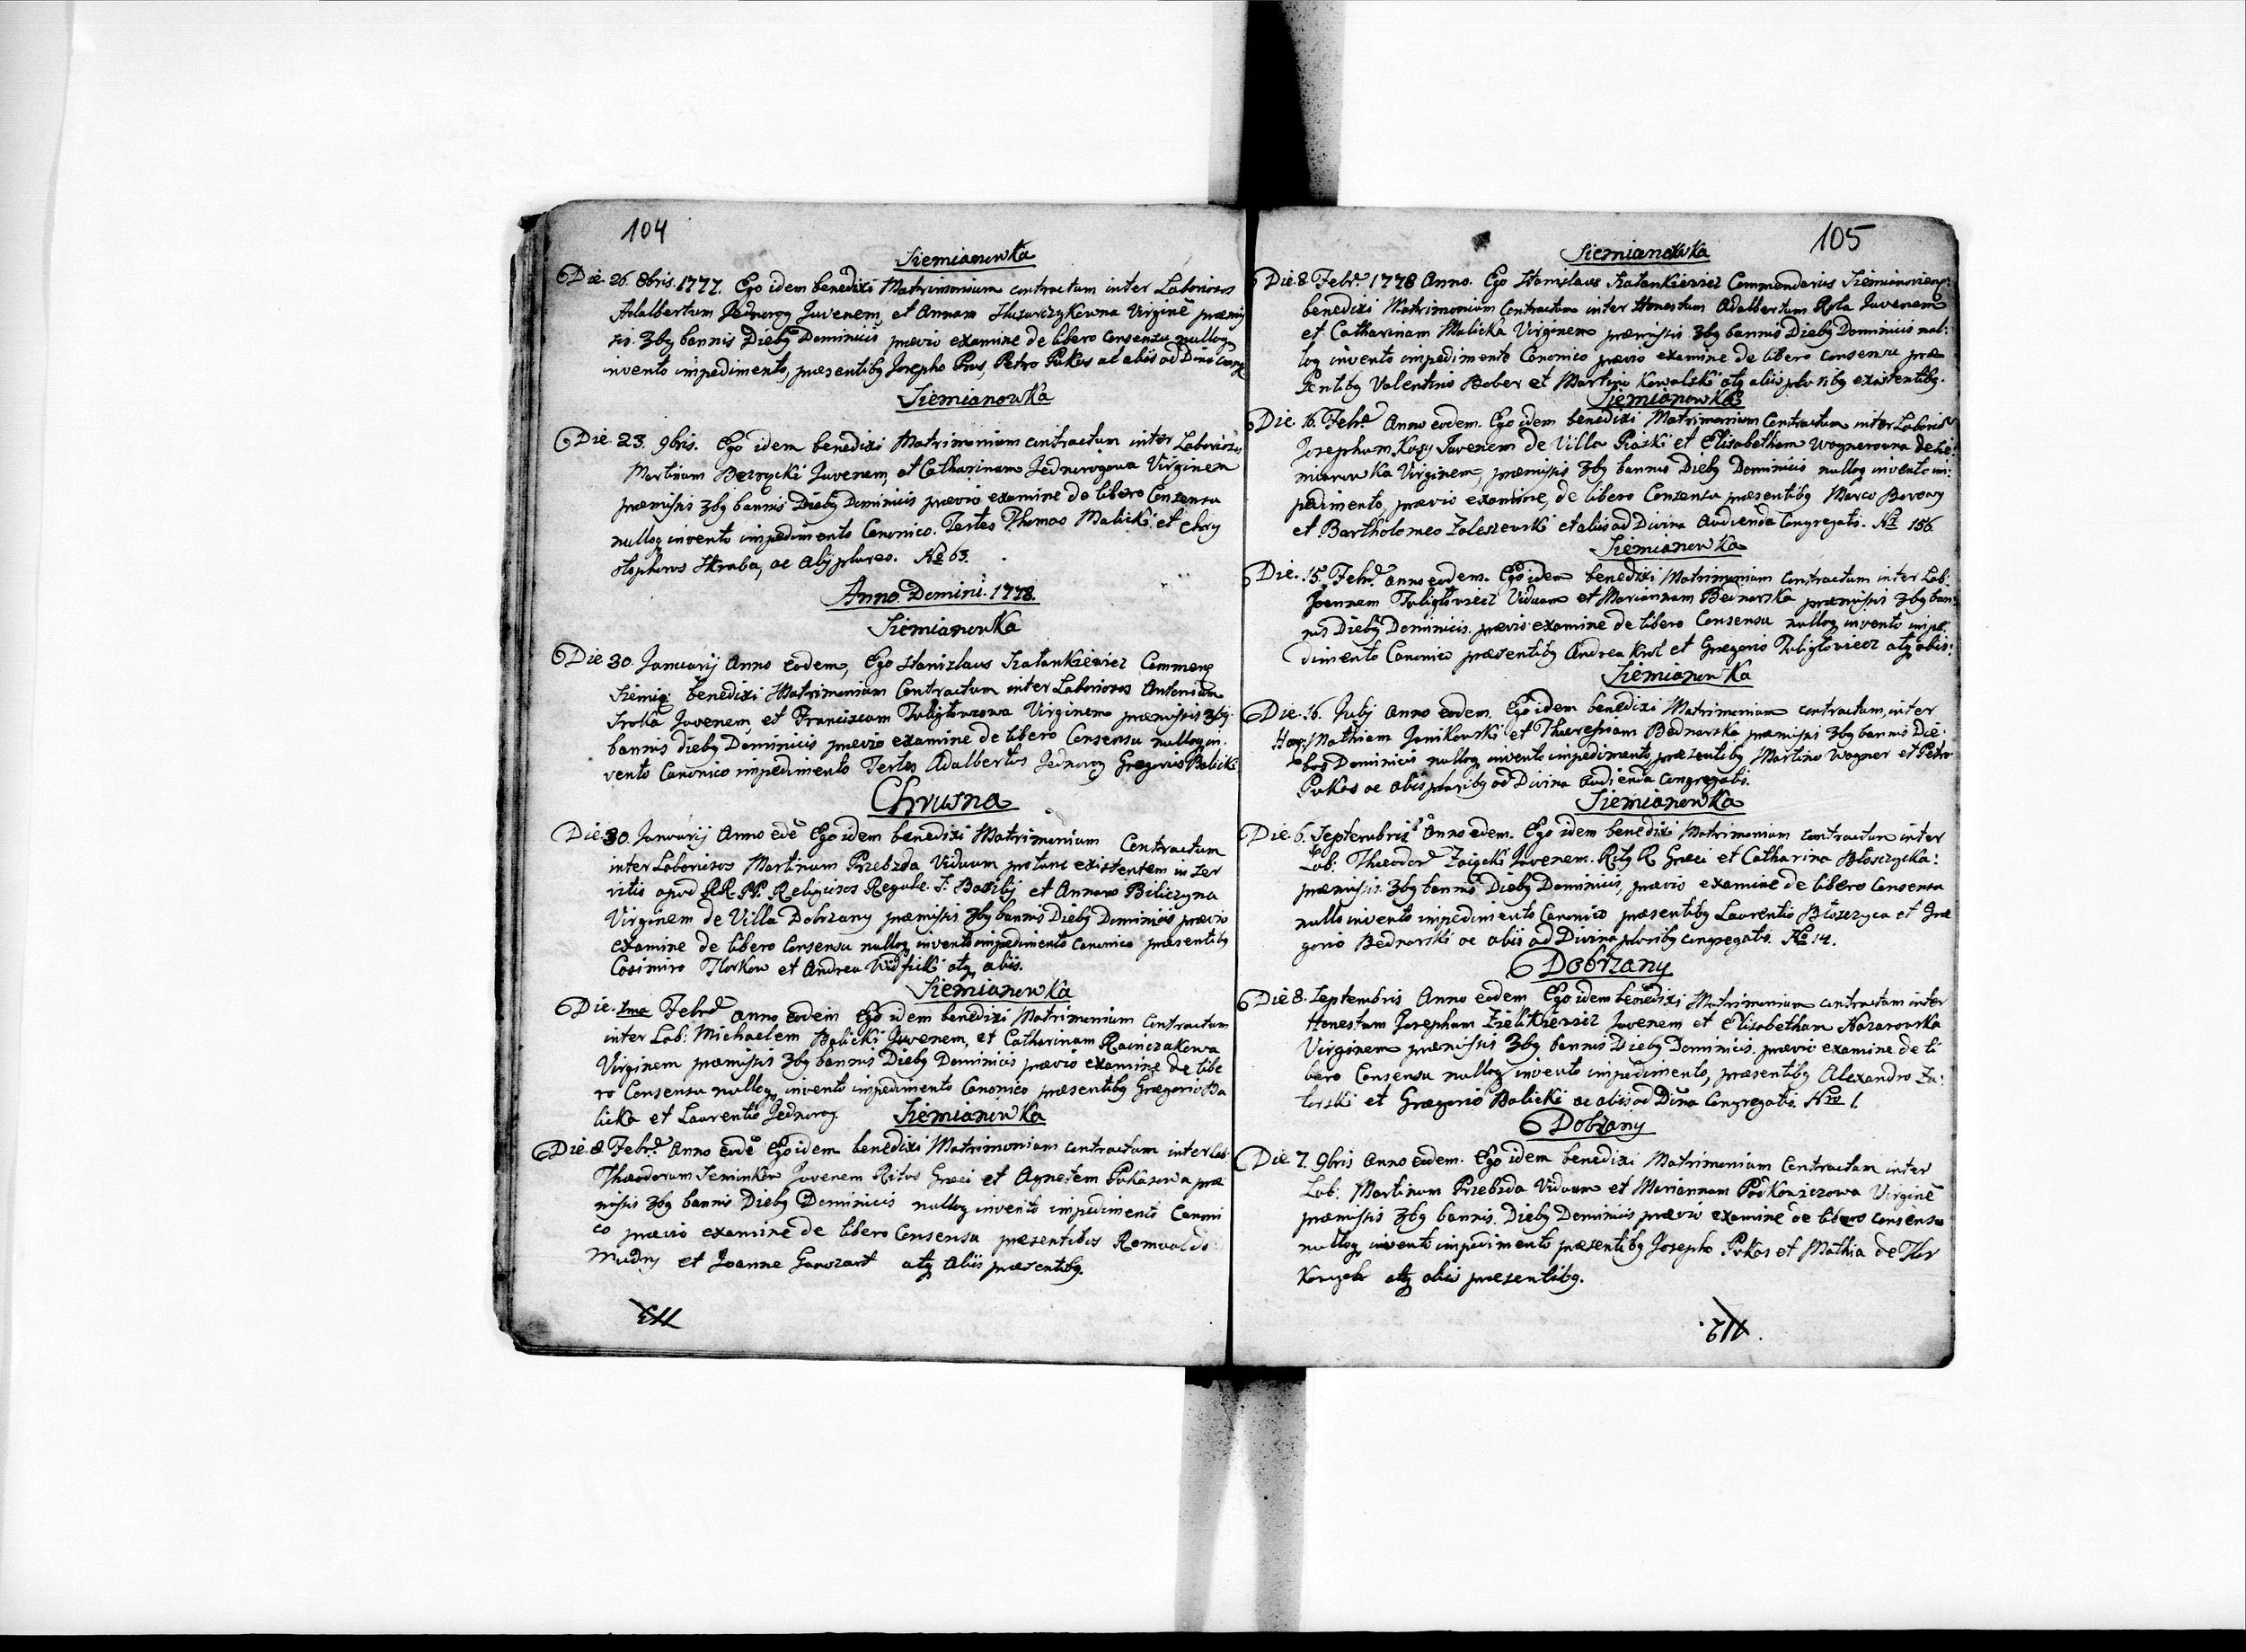 104
Siemianowka
Die 26. 8bris. 1777. Ego idem benedixi Matrimonium contractum inter Laboriosos
Adalbertum Jednorog Juvenem, et Annam Husarczykowna Virginē præmis
sis. 3bꝯ bannis Diebꝯ Dominicis, prævio examine de libero consensu nulloqꝫ
invento impedimento, præsentibꝯ Josepho Prus, Petro Pukas ac aliis ad Divi: cong:
Siemianowka
Die 23. 9bris. Ego idem benedixi Matrimonium contractum inter Laboriosos
Martinum Bezrycki Juvenem, et Catharinam Jednorogowa Virginem
præmissis 3bꝯ bannis Diebꝯ Dominicis prævio examine de libero Consensu
nulloqꝫ invento impedimento Canonico. Testes Thomas Malicki et Chry
stophorus Skraba, ac Alij plures. No 63.
Anno Domini. 1778.
Siemianowka
Die 30. Januarij Anno eodem, Ego Stanislaus Szatankiewicz Commenꝫ
Siemiꝫ benedixi Matrimonium Contractum inter Laboriosos Antonium
Sroka Juvenem, et Franciscam Tuliglowzowa Virginem præmissis 3bꝯ
bannis diebꝯ Dominicis prævio examine de libero Consensu nulloqꝫ in:
vento Canonico impedimento Testes Adalbertus Jednorog Gregorius Balicki
Chrusna
Die 30. Januarij Anno eodē Ego idem benedixi Matrimonium Contractum
inter Laboriosos Martinum Przebzda Viduum pro tunc existentem in ser
vitio apud RR. PP. Religiosos Regulæ S. Basilij et Annam Biliczyna
Virginem de Villa Dobrzany præmissis 3bꝯ bannis Diebꝯ Dominicis prævio
examine de libero Consensu nulloqꝫ invento impedimento canonico præsentibꝯ
Casimiro Horkow et Andrea atqꝫ aliis.
Siemianowka
Die. 1ma Febrꝫ anno eodem Ego idem benedixi Matrimonium Contractum
inter Lab: Michaelem Balicki Juvenem, et Catharinam Rainczakowa
Virginem præmissis 3bꝯ bannis Diebꝯ Dominicis prævio examine de libe
ro Consensu nulloqꝫ invento impedimento Canonico præsentibꝯ Gregorio Ba
licki et Laurentio Jednorog
Siemianowka
Die. 8 Febr. Anno eodē Ego idem benedixi Matrimonium contractum inter Lab:
Theodorum Seminkow Juvenem Ritus Græci et Agnetem Pukasowa præ
missis 3bꝯ bannis Diebꝯ Dominicis nulloqꝫ invento impedimento Canoni
co prævio examine de libero Consensu præsentibus Romualdo
Mudry et Joanne Ganczart atqꝫ Aliis præsentibꝯ.
105
Siemianowka
Die 8 Febr. 1778 Anno. Ego Stanislaus Szatankiewicz Commendarius Siemianoviensꝫ
benedixi Matrimonium Contractum inter Honestum Adalbertum Rola Juvenem
et Catharinam Malicka Virginem præmissis 3bꝯ bannis Diebꝯ Dominicis nul:
loqꝫ invento impedimento Canonico prævio examine de libero consensu præ
sentibꝯ Valentino Bober et Martino Kowalski atqꝫ aliis pluribꝯ existentibꝯ.
Siemianowka
Die 16. Febr. Anno eodem. Ego idem benedixi Matrimonium Contractum inter Laborios
Josephum Kosy Juvenem de Villa Piaski et Elisabetham Wognerowna de Sie:
mianowka Virginem, præmissis 3bꝯ bannis Diebꝯ Dominicis nulloqꝫ invento im:
pedimento, prævio examine, de libero Consensu præsentibꝯ Marco Borowy
et Bartholomeo Zaleszewski et aliis ad Divina Audienda Congregatis. No 156
Siemianowka
Die. 15. Febr. anno eodem. Ego idem benedixi Matrimonium contractum inter Lab:
Joannem Tuliglowicz Viduum et Mariannam Bednarska præmissis 3bꝯ ban:
nis Diebꝯ Dominicis. prævio examine de libero Consensu nulloqꝫ invento impe:
dimento Canonico præsentibꝯ Andrea Krol et Gregorio Tuliglowicz atqꝫ aliis:
Siemianowka
Die. 16. Julij Anno eodem. Ego idem benedixi Matrimonium contractum, inter
Hon: Mathiam Janikowski et Theressiam Bednarska præmissis 3bꝯ bannis Die:
bus Dominicis nulloqꝫ invento impedimento præsentibꝯ Martino Wogner et Petro
Pukas ac aliis pluribꝯ ad Divina Audienda congregatis.
Siemianowka
Die 6. Septembris Anno eodem. Ego idem benedixi Matrimonium contractum inter
Lab. Theodor Zaigcki Juvenem. Ritꝯ R Græci et Catharina Bloszczycka:
præmissis 3bꝯ bannis Diebꝯ Dominicis, prævio examine de libero Consensu
nullo invento impedimento Canonico præsentibꝯ Laurentio Bloszczyca et Gre
gorio Bednarski ac aliis ad Divina pluribꝯ congregatis. No 14.
Dobrzany
Die 8. Septembris Anno eodem Ego idem benedixi Matrimonium contractum inter
Honestum Josephum Zielikiewicz Juvenem et Elisabetham Nazarowska
Virginem præmissis 3bꝯ bannis Diebꝯ Dominicis. prævio examine de li
bero Consensu nulloqꝫ invento impedimento, præsentibꝯ Alexandro Za:
torski et Gregorio Balicki ac aliis ad Divina Congregatis. No 1.
Dobrzany
Die 7. 9bris Anno eodem. Ego idem benedixi Matrimonium Contractum inter
Lab: Martinum Przebzda Viduum et Mariannam Podkonszowa Virginē
præmissis 3bꝯ bannis. Diebꝯ Dominicis prævio examine de libero consensu
nulloqꝫ invento impedimento præsentibꝯ Josepho Pukas et Mathia de
atqꝫ aliis præsentibꝯ.